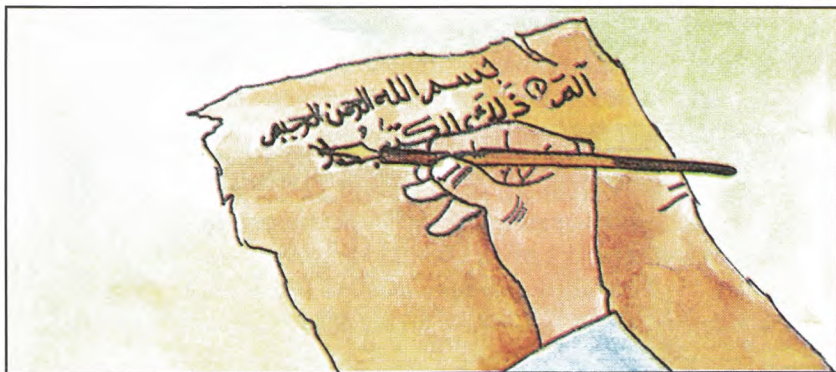 بسم الله الرحمن الرحيم
الٓمٓ ۝ ذَٰلِكَ الكتٰبُ لا